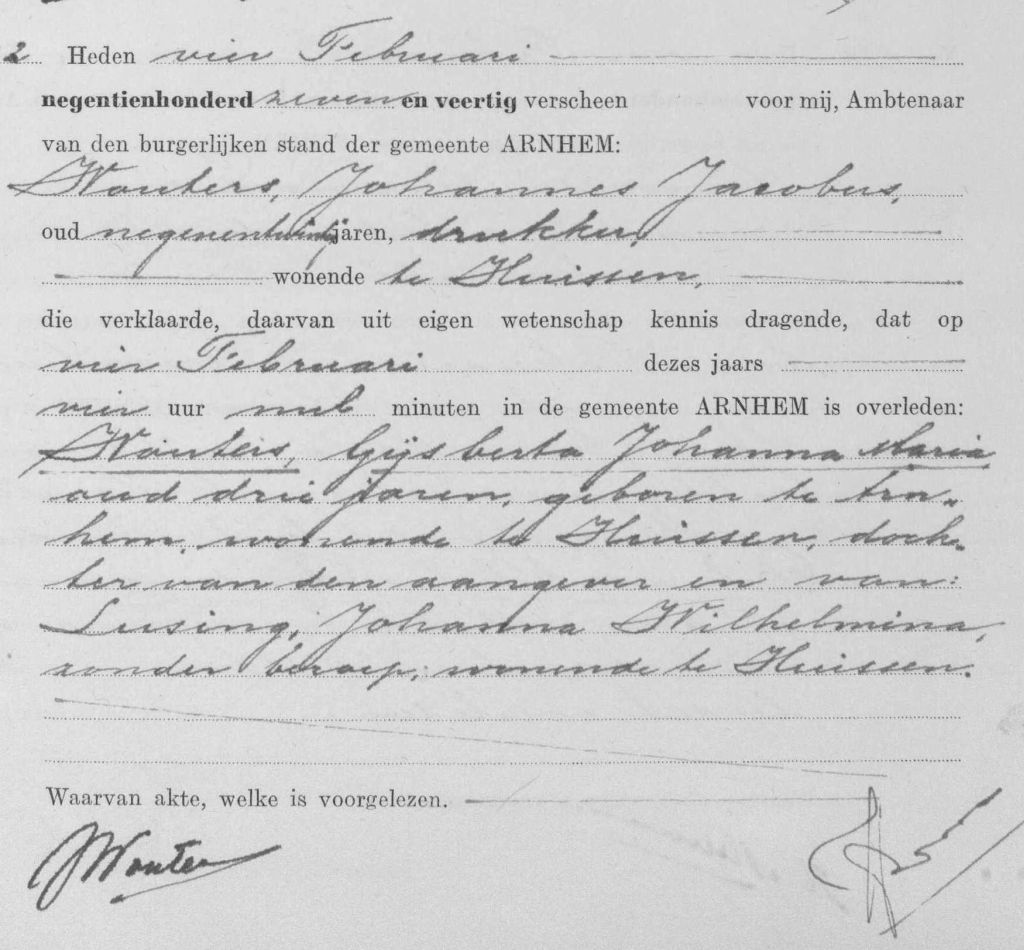 2 Heden vier Februari
negentienhonderd zeven en veertig verscheen voor mij, Ambtenaar
van den burgerlijken stand der gemeente ARNHEM:
Wouters, Johannes Jacobus,
oud negenentwintig jaren, drukker,
wonende te Huissen,
die verklaarde, daarvan uit eigen wetenschap kennis dragende, dat op
vier Februari dezes jaars
vier uur nul minuten in de gemeente ARNHEM is overleden:
Wouters, Gijsberta Johanna Maria
oud drie jaren, geboren te Arn„
hem, wonende te Huissen, doch„
ter van den aangever en van:
Lusing, Johanna Wilhelmina,
zonder beroep, wonende te Huissen.
Waarvan akte, welke is voorgelezen.
JWouters